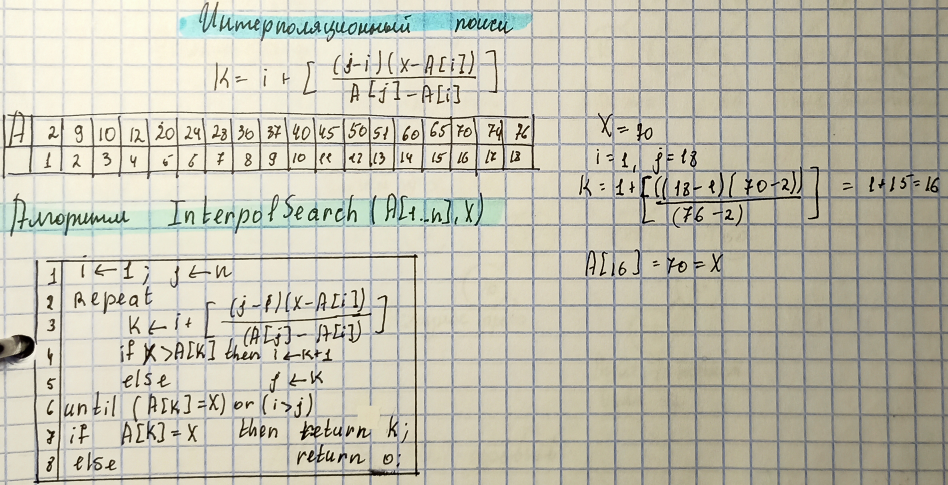 Интерполяционный поиск
K = i + [ (j-i)(x-A[i]) / A[j]-A[i] ]
A 2 9 10 12 20 24 28 30 37 40 45 50 51 60 65 70 74 76
1 2 3 4 5 6 7 8 9 10 11 12 13 14 15 16 17 18
Алгоритм InterpolSearch (A[1..n], X)
1 i ← 1; j ← n
2 Repeat
3 K ← i + [ (j-i)(x-A[i]) / (A[j] - A[i]) ]
4 if X > A[K] then i ← K+1
5 else j ← K
6 until (A[K] = X) or (i > j)
7 if A[K] = X then return K;
8 else return 0;
X = 70
i = 1, j = 18
K = 1 + [ ((18-1)(70-2)) / (76-2) ] = 1+15 = 16
A[16] = 70 = X